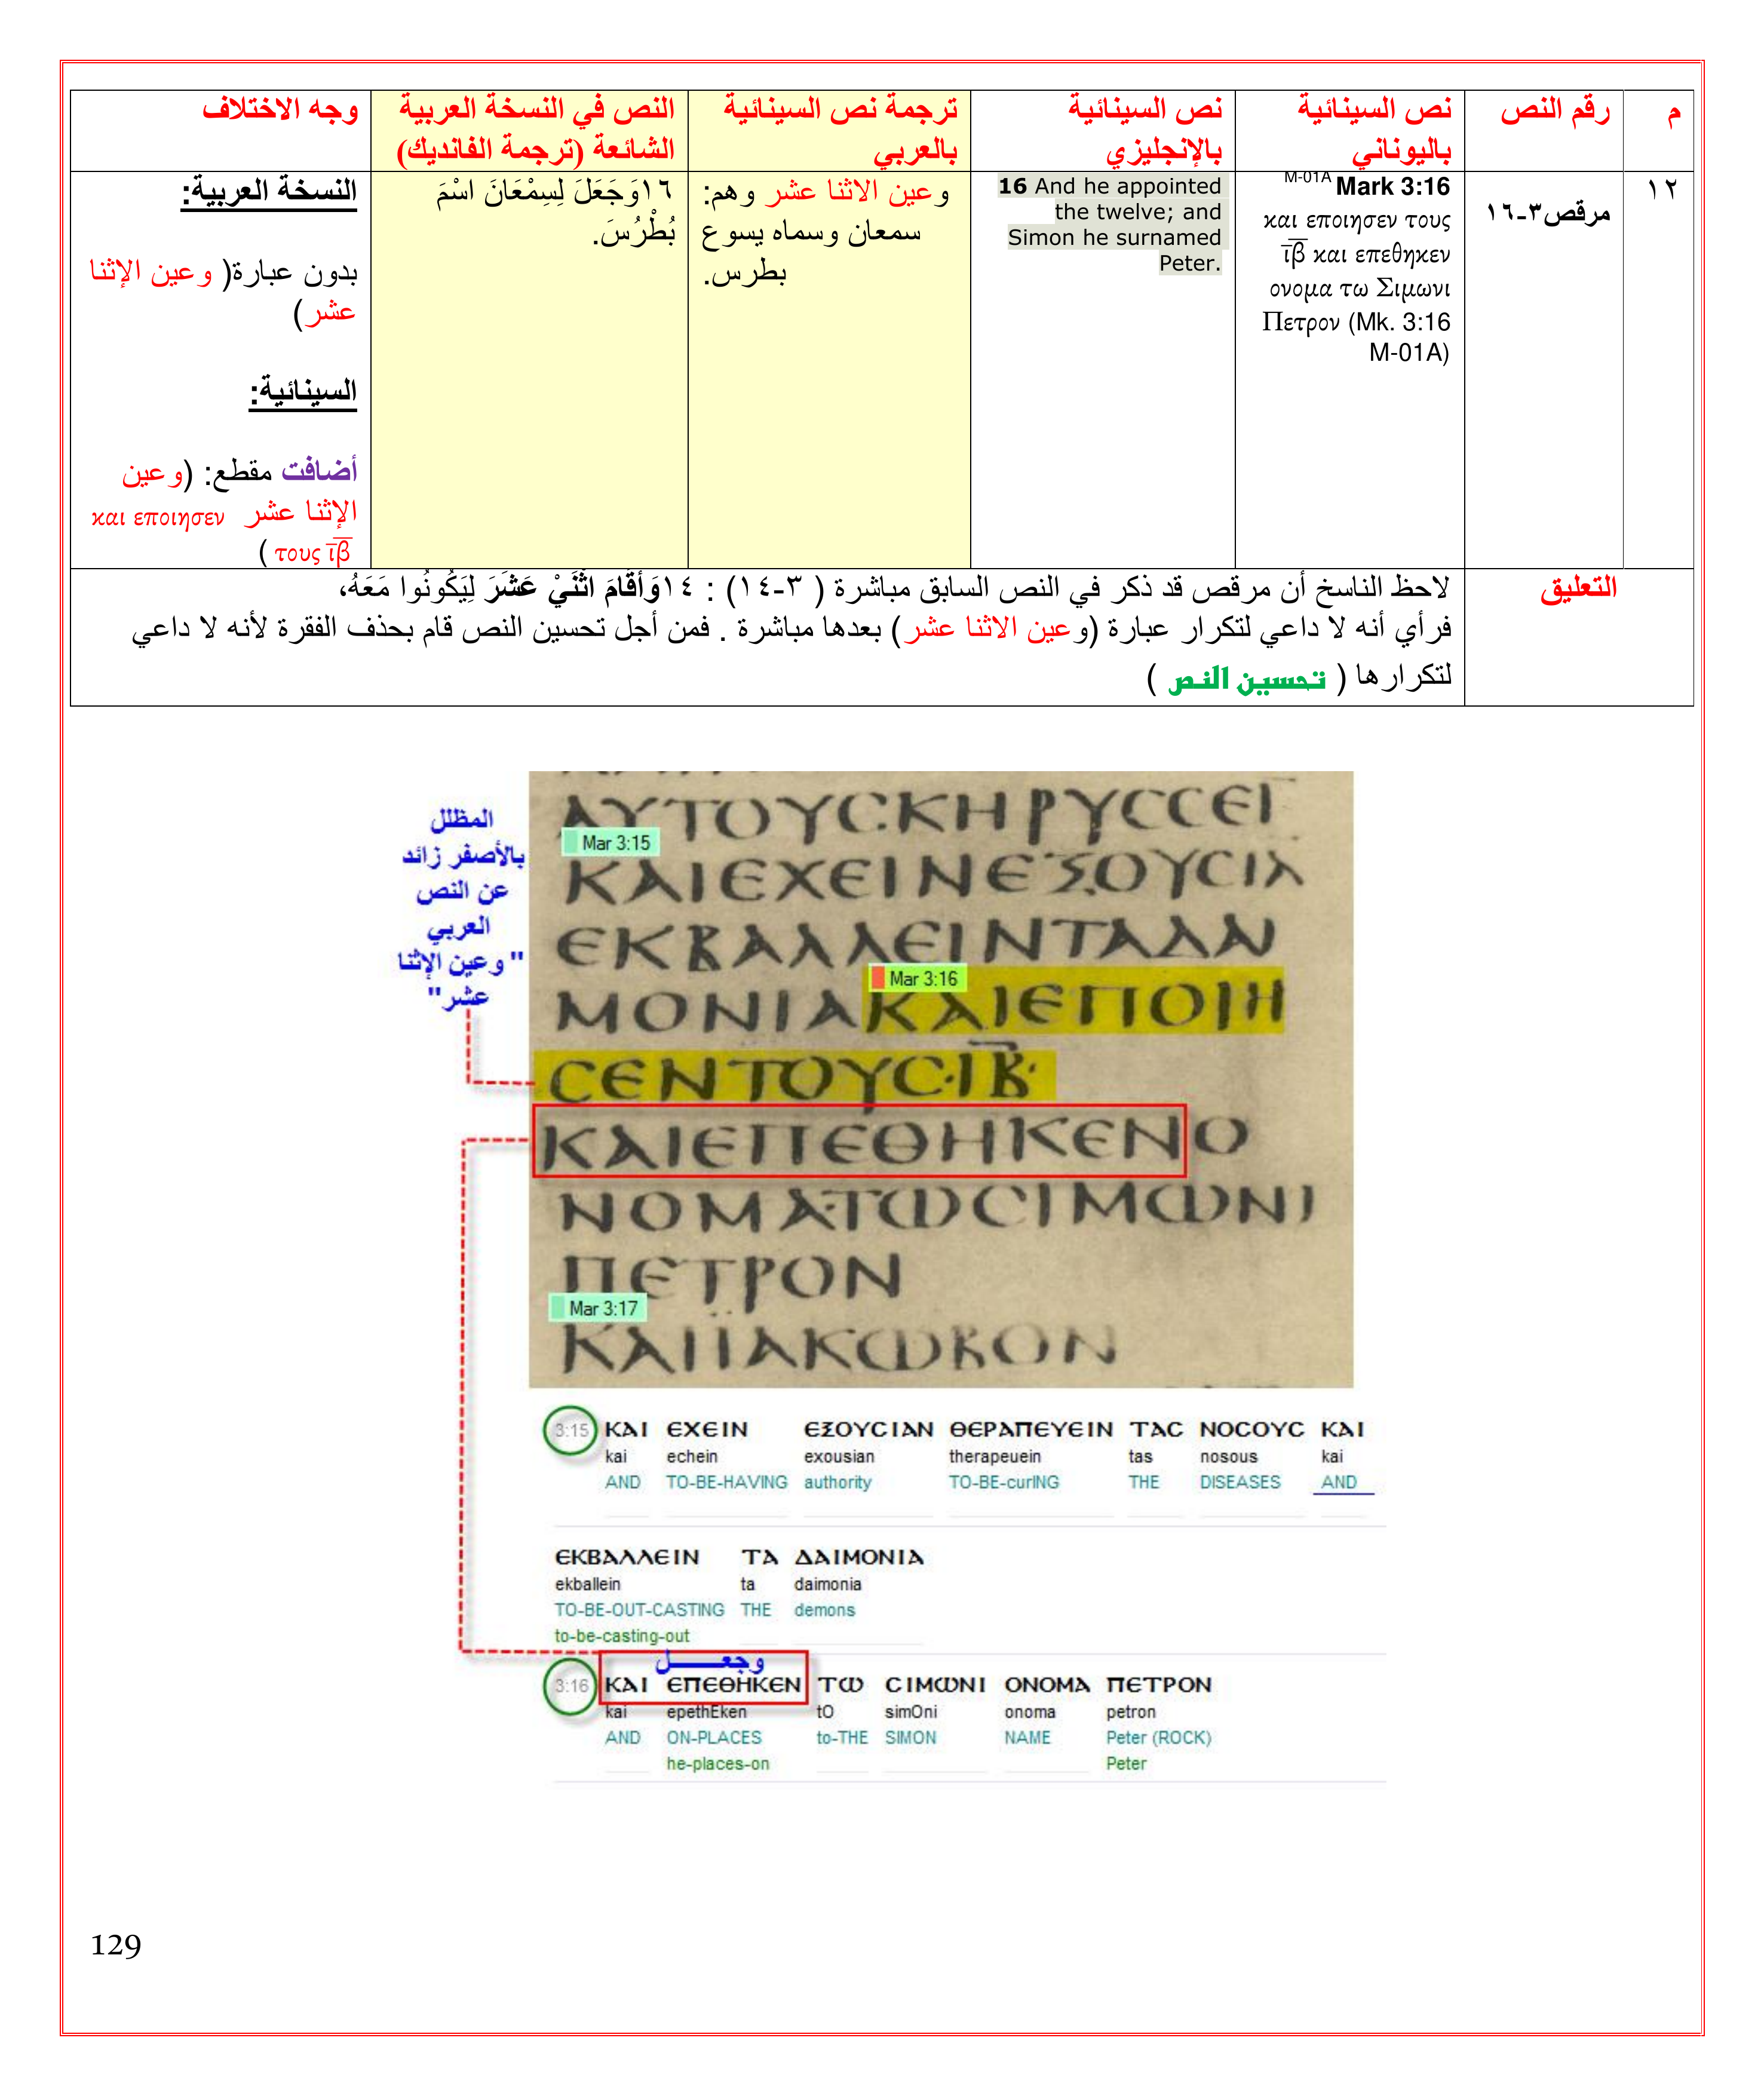 م
رقم النص
نص السينائية
باليوناني
نص السينائية
بالإنجليزي
ترجمة نص السينائية
بالعربي
النص في النسخة العربية
الشائعة (ترجمة الفانديك)
وجه الاختلاف
١٢
مرقص٣-١٦
M-01A Mark 3:16
και εποιησεν τους
ι̅β̅ και επεθηκεν
ονομα τω Σιμωνι
Πετρον (Mk. 3:16
M-01A)
16 And he appointed
the twelve; and
Simon he surnamed
Peter.
وعين الاثنا عشر وهم:
سمعان وسماه يسوع
بطرس.
١٦وَجَعَلَ لِسِمْعَانَ اسْمَ
بُطْرُسَ.
النسخة العربية:
بدون عبارة( وعين الإثنا
عشر)
السينائية:
أضافت مقطع: (وعين
الإثنا عشر και εποιησεν
τους ι̅β̅ )
التعليق
لاحظ الناسخ أن مرقص قد ذكر في النص السابق مباشرة ( ٣-١٤) : ١٤وَأَقَامَ اثْنَيْ عَشَرَ لِيَكُونُوا مَعَهُ،
فرأي أنه لا داعي لتكرار عبارة (وعين الاثنا عشر) بعدها مباشرة . فمن أجل تحسين النص قام بحذف الفقرة لأنه لا داعي
لتكرارها ( تحسين النص )
المظلل
بالأصفر زائد
عن النص
العربي
"وعين الإثنا
عشر"
ΑΥΤΟΥϹΚΗΡΥϹϹΕΙ
Mar 3:15
ΚΑΙΕΧΕΙΝΕΞΟΥϹΙΑ
ΕΚΒΑΛΛΕΙΝΤΑΔΑΙ
Mar 3:16
ΜΟΝΙΑΚΑΙΕΠΟΙΗ
ϹΕΝΤΟΥϹ·Ι̅Β̅·
ΚΑΙΕΠΕΘΗΚΕΝΟ
ΝΟΜΑΤΩϹΙΜΩΝΙ
ΠΕΤΡΟΝ
Mar 3:17
ΚΑΙΪΑΚΩΒΟΝ
3:15 ΚΑΙ ΕΧΕΙΝ ΕΞΟΥϹΙΑΝ ΘΕΡΑΠΕΥΕΙΝ ΤΑϹ ΝΟϹΟΥϹ ΚΑΙ
kai echein exousian therapeuein tas nosous kai
AND TO-BE-HAVING authority TO-BE-curING THE DISEASES AND
ΕΚΒΑΛΛΕΙΝ ΤΑ ΔΑΙΜΟΝΙΑ
ekballein ta daimonia
TO-BE-OUT-CASTING THE demons
to-be-casting-out
وجعـــل
3:16 ΚΑΙ ΕΠΕΘΗΚΕΝ ΤΩ ϹΙΜΩΝΙ ΟΝΟΜΑ ΠΕΤΡΟΝ
kai epethEken tO simOni onoma petron
AND ON-PLACES to-THE SIMON NAME Peter (ROCK)
he-places-on Peter
129